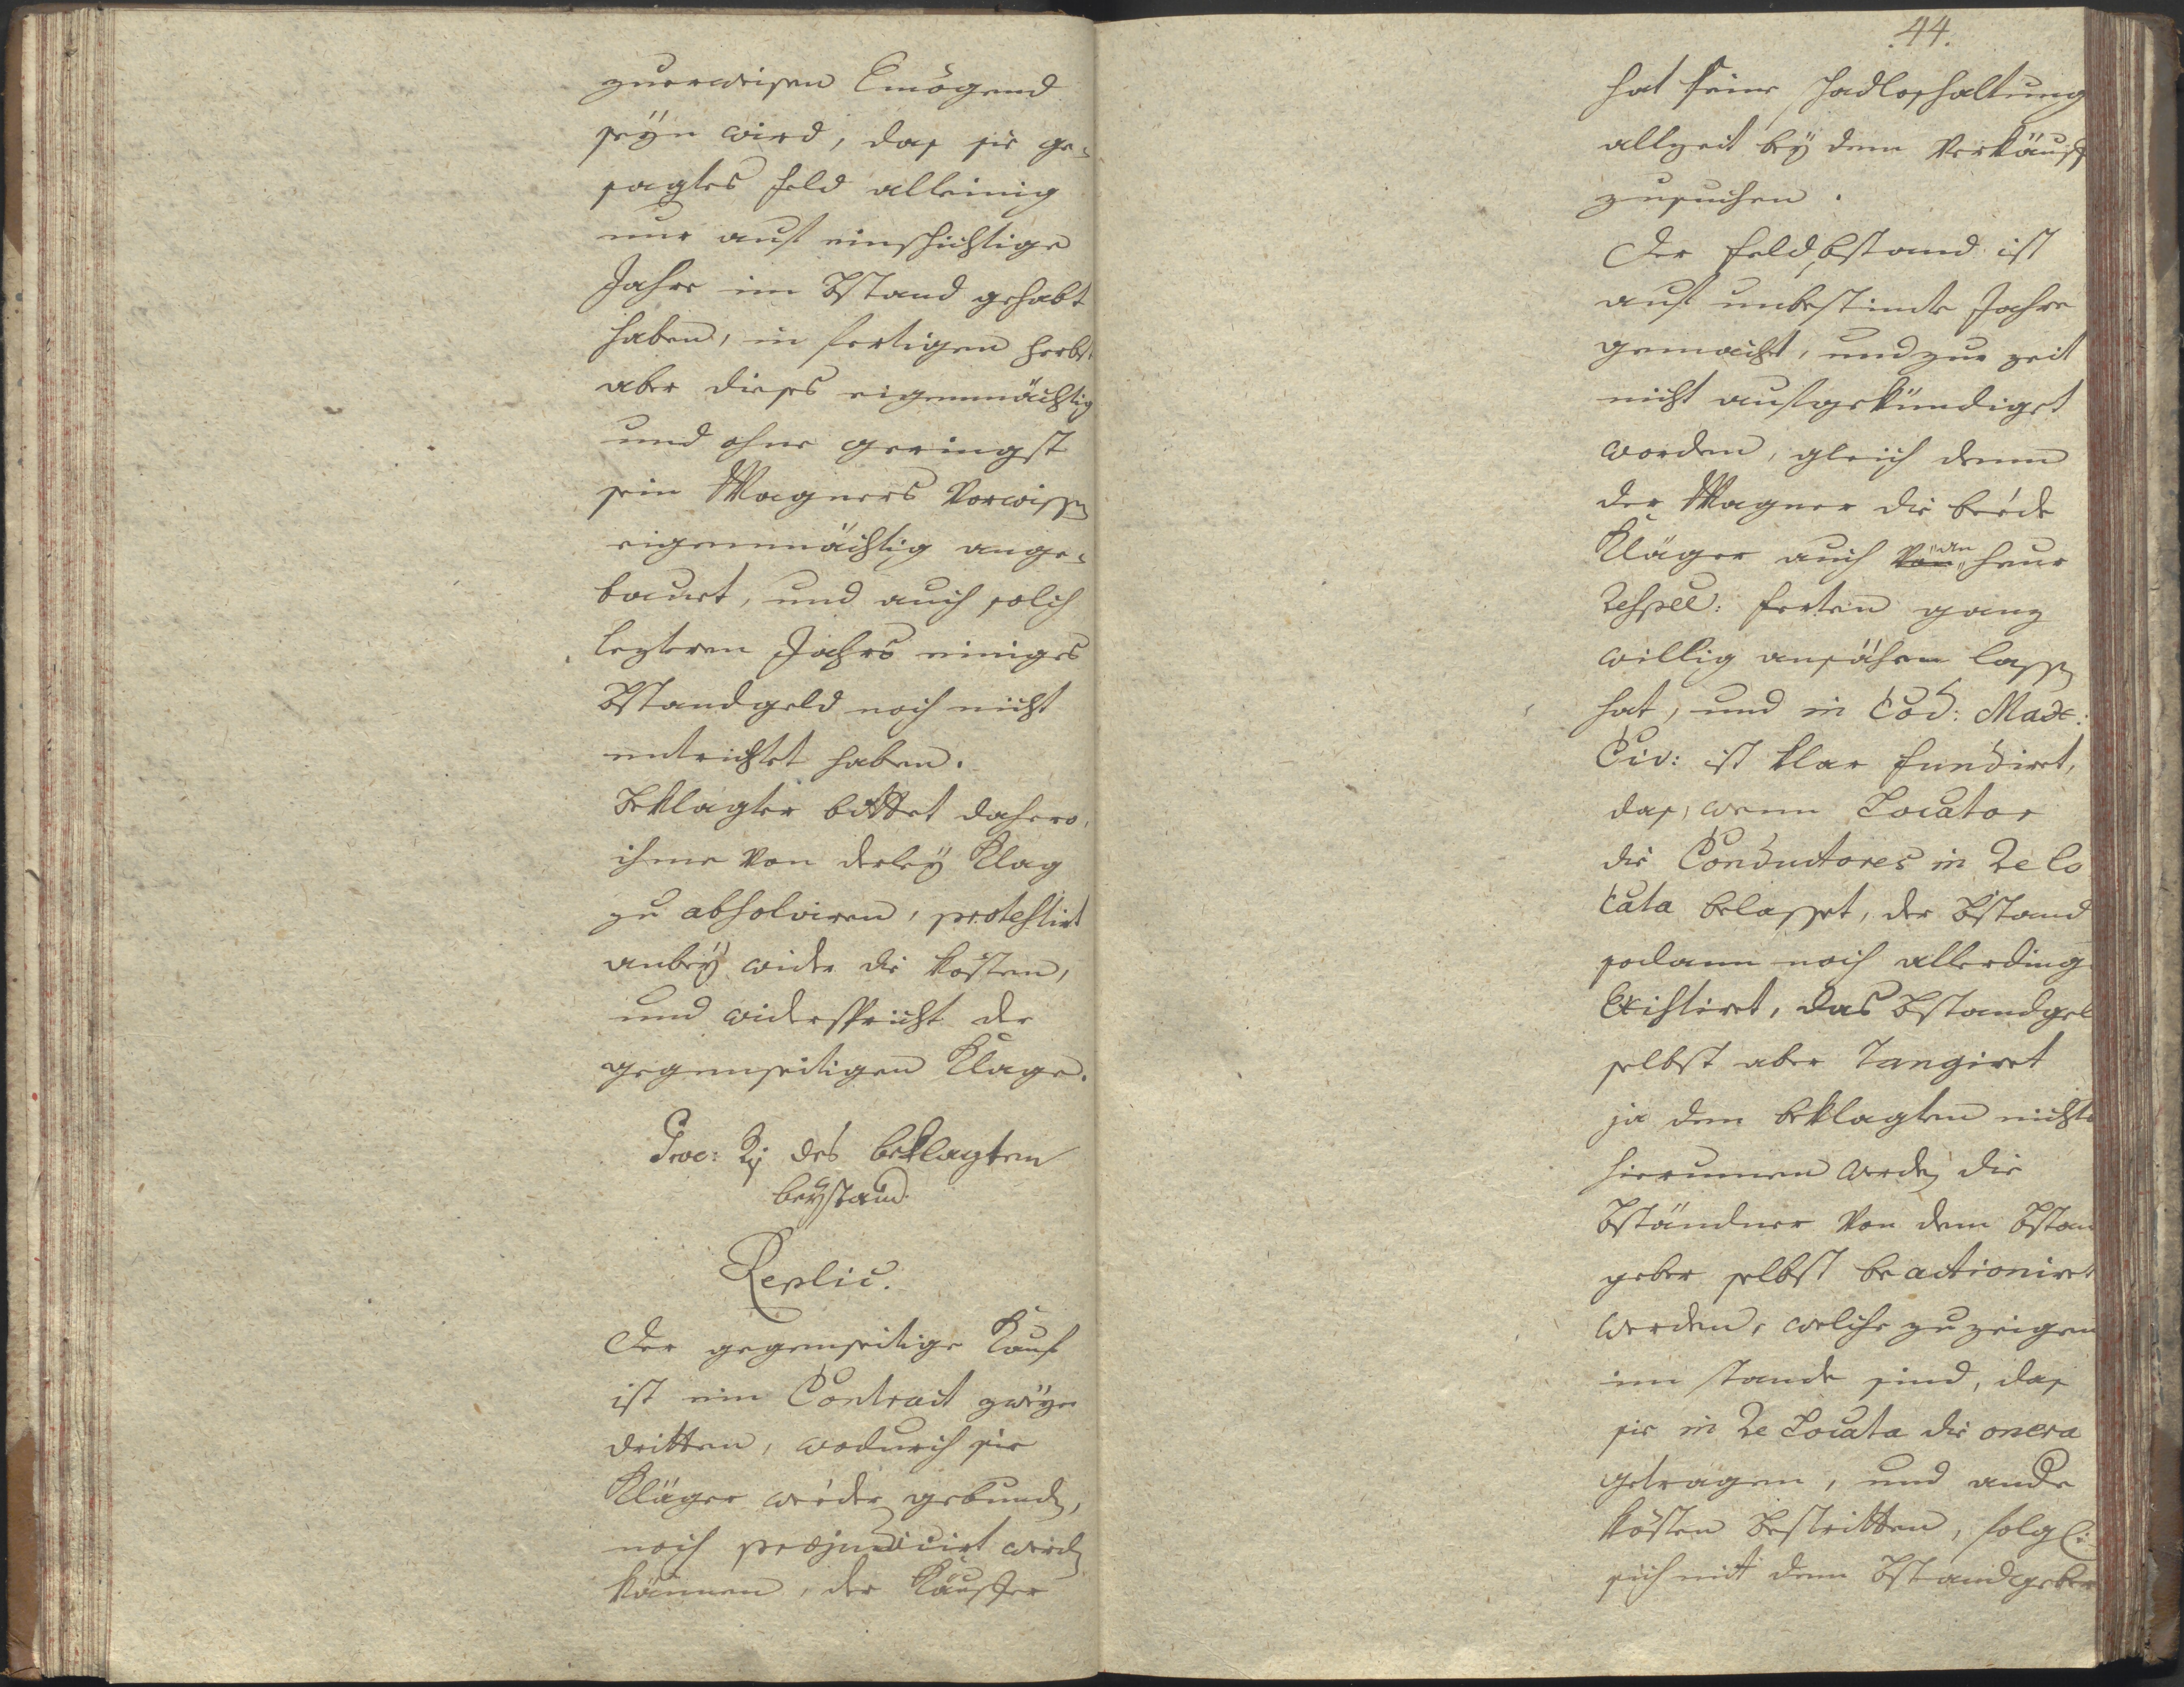 zuerweisen Emögend
seÿn wird, das sie ge-
sagtes Feld alleinig
nur auf einschichtige
Jahre im Bstand gehabt
haben, in fertigen Herbst
aber dieses eigenmächtig
und ohne geringst
sein Wagners Vorwissen
eigenmächtig ange-
bauet, und auch solch
lezteren Jahrs einiges
Bstandgeld noch nicht
entrichtet haben.
Beklagter bittet dahero,
ihme von derleÿ Klag
zu absolviren, protestirt
anbeÿ wider die Kösten,
und widerspricht der
gegenseitigen Klage.
Proc: des beklagten
beÿstand
Replic.
Der gegenseitige Kauf
ist ein Contract zweÿer
dritten, wodurch sie
Kläger weder gebunden,
noch præjudicirt werden
können, der Käuffer
44.
hat seine Hadloshaltung
allzeit beÿ dem Verkäuff
zusuchen.
Der Feldbstand ist
auf unbestimte Jahre
gemacht, und zur zeit
nicht aufgekündiget
worden, gleich denn
der Wagner die beede
Kläger auch an heur
Respee: ferten ganz
willig ansähen lassen
hat, und in Cod: Max:
Civ: ist klar fundiret,
das, wenn Locator
die Conductores in Re lo
cata belasset, der Bstand
sodann noch allerding
Existiret, das Bstandgel
selbst aber Tangiret
ja dem beklagten nichts
hierumen werden die
Bständner von dem Bstan
geber selbst beactioniret
werden, welche zu zeigen
im stande sind, das
sie in Re Locata die onera
getragen, und ande
kösten bestritten, folgl:
sich mit dem Bstandgeber